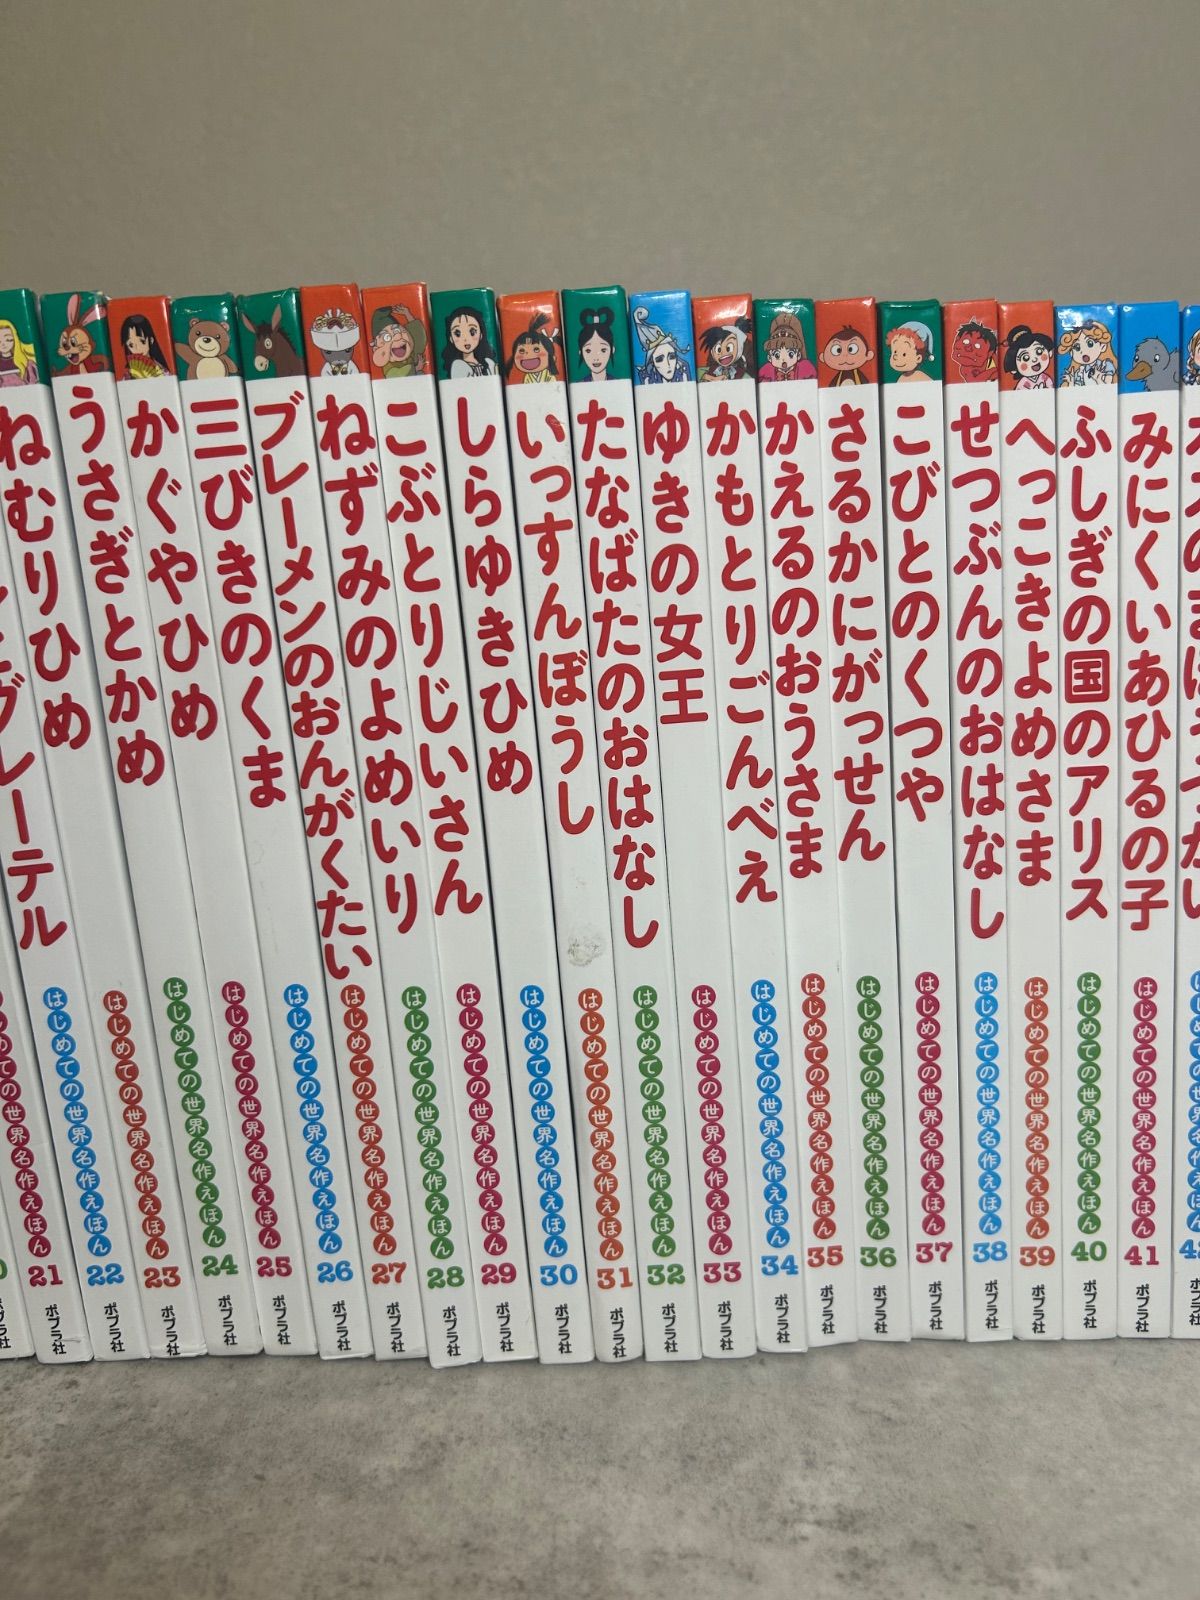 グレーテル
ねむりひめ
はじめての世界名作えほん
21
ポプラ社
うさぎとかめ
はじめての世界名作えほん
22
ポプラ社
かぐやひめ
はじめての世界名作えほん
23
ポプラ社
三びきのくま
はじめての世界名作えほん
24
ポプラ社
ブレーメンのおんがくたい
はじめての世界名作えほん
25
ポプラ社
ねずみのよめいり
はじめての世界名作えほん
26
ポプラ社
こぶとりじいさん
はじめての世界名作えほん
27
ポプラ社
しらゆきひめ
はじめての世界名作えほん
28
ポプラ社
いっすんぼうし
はじめての世界名作えほん
29
ポプラ社
たなばたのおはなし
はじめての世界名作えほん
30
ポプラ社
ゆきの女王
はじめての世界名作えほん
31
ポプラ社
かもとりごんべえ
はじめての世界名作えほん
32
ポプラ社
かえるのおうさま
はじめての世界名作えほん
33
ポプラ社
さるかにがっせん
はじめての世界名作えほん
34
ポプラ社
こびとのくつや
はじめての世界名作えほん
35
ポプラ社
せつぶんのおはなし
はじめての世界名作えほん
36
ポプラ社
へっこきよめさま
はじめての世界名作えほん
37
ポプラ社
ふしぎの国のアリス
はじめての世界名作えほん
38
ポプラ社
みにくいあひるの子
はじめての世界名作えほん
39
ポプラ社
はじめての世界名作えほん
40
ポプラ社
はじめての世界名作えほん
41
ポプラ社